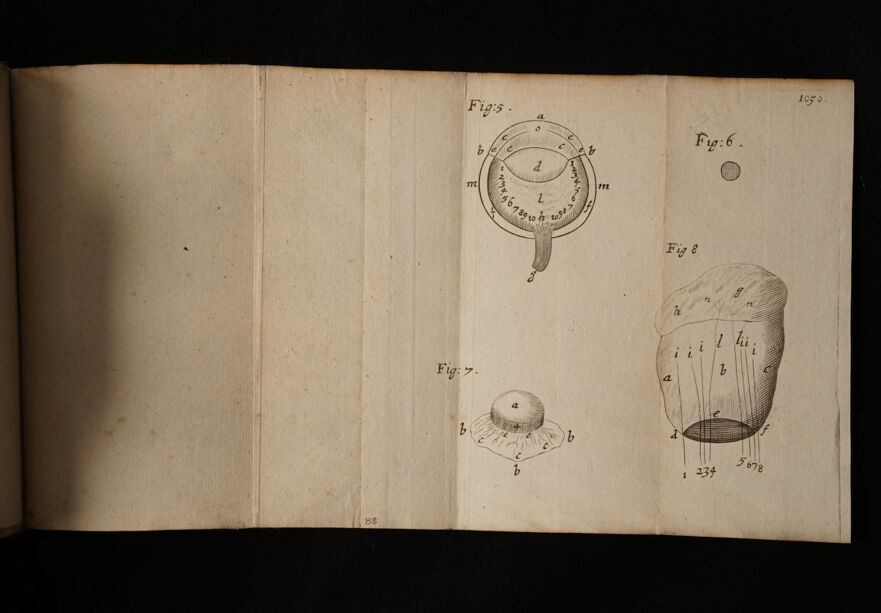 1050.
Fig:5.
a
o
c c
e e
b c c b
d
1 1
2 2
3 3
m 4 4 m
5 5
6 l 6
7 8 9 10 h 10 9 8 7
g
Fig:6.
Fig 8
g
h n n
i i i l l i i i
a b c
e
d f
1 2 3 4 5 6 7 8
Fig:7.
a
b c e + e c b
c
b
88